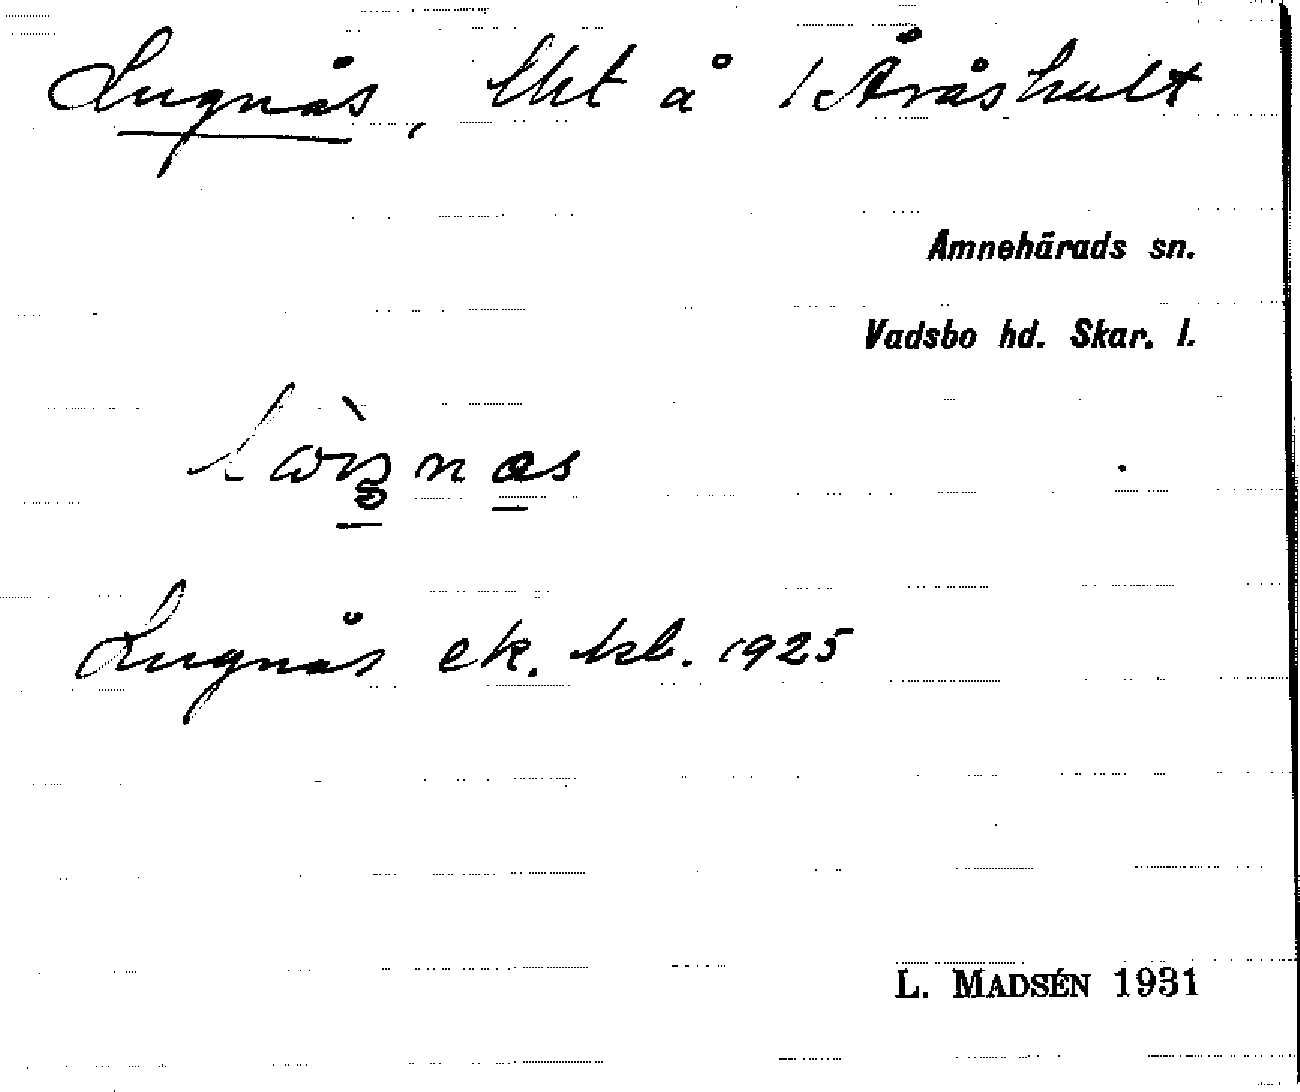 Lugnås, lht å 1 Åråshult
Amnehärads sn.
Vadsbo hd. Skar. l.
Lugnås ek. kbl. 1925
L. MADSÉN 1931